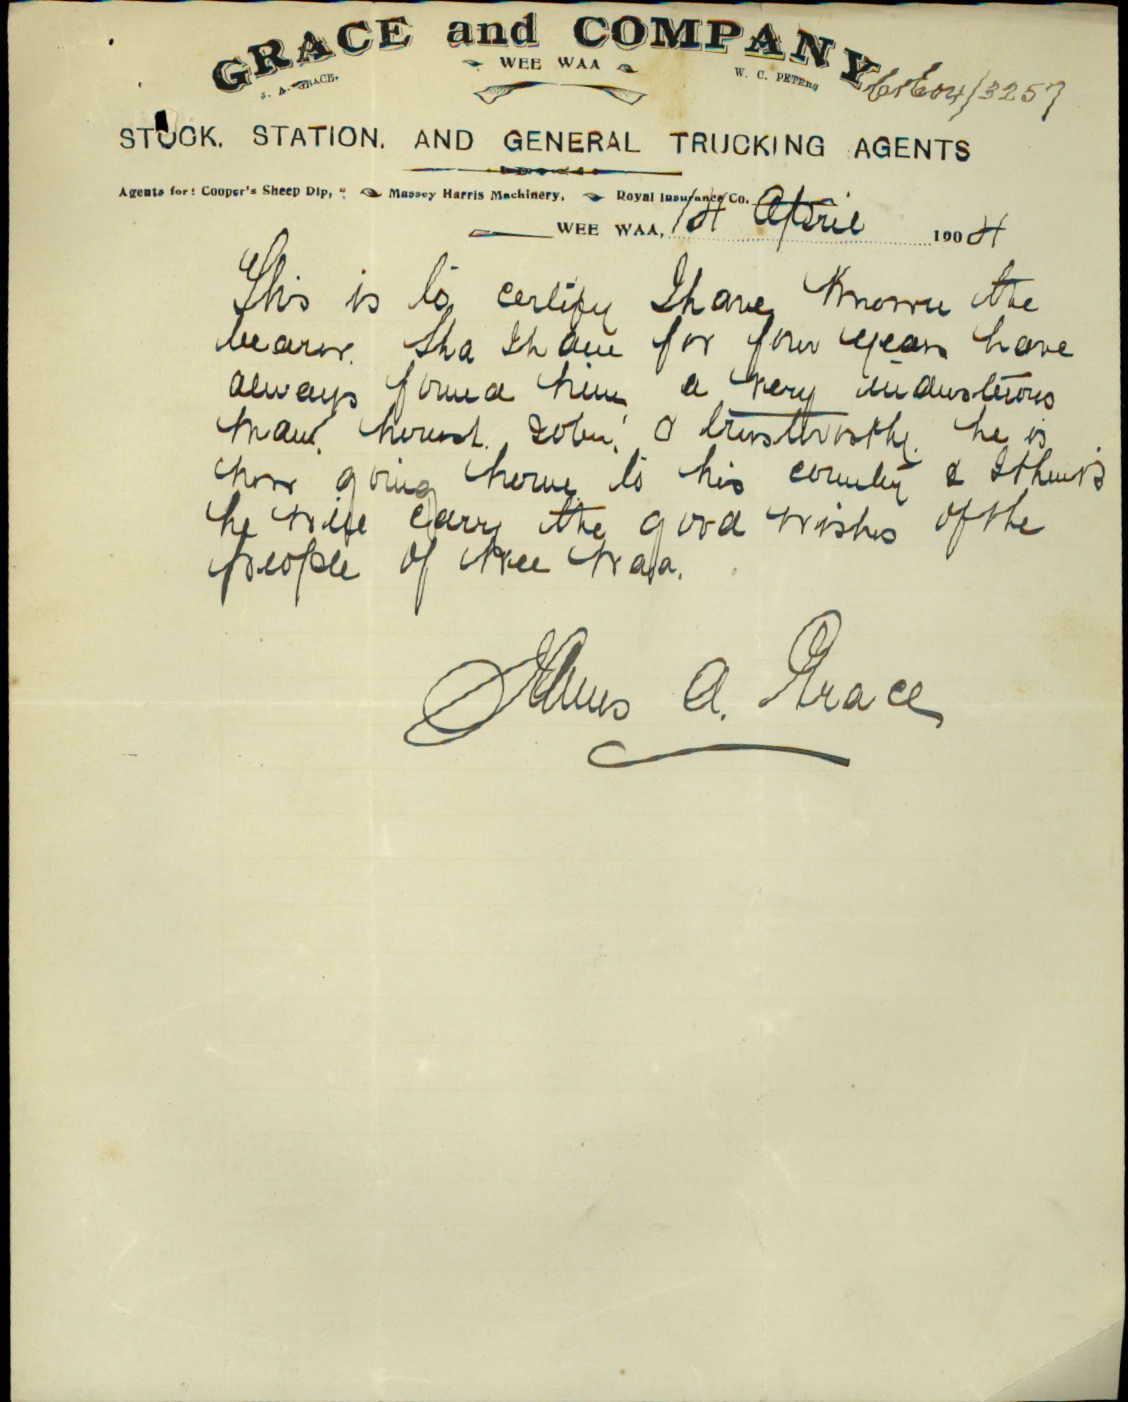 GRACE and COMPANY
WEE WAA
J. A. GRACE. W. C. PETERS
04/3257
STOCK, STATION, AND GENERAL TRUCKING AGENTS
Agents for: Cooper's Sheep Dip, Massey Harris Machinery, Royal Insurance Co.
WEE WAA, 14 April 1904
This is to certify I have known the
bearer. Sha for four years have
always found him a very industrious
man, honest. sober, & trustworthy. he is
now going home to his country & I think
he will carry the good wishes of the
people of Wee Waa.
James A. Grace